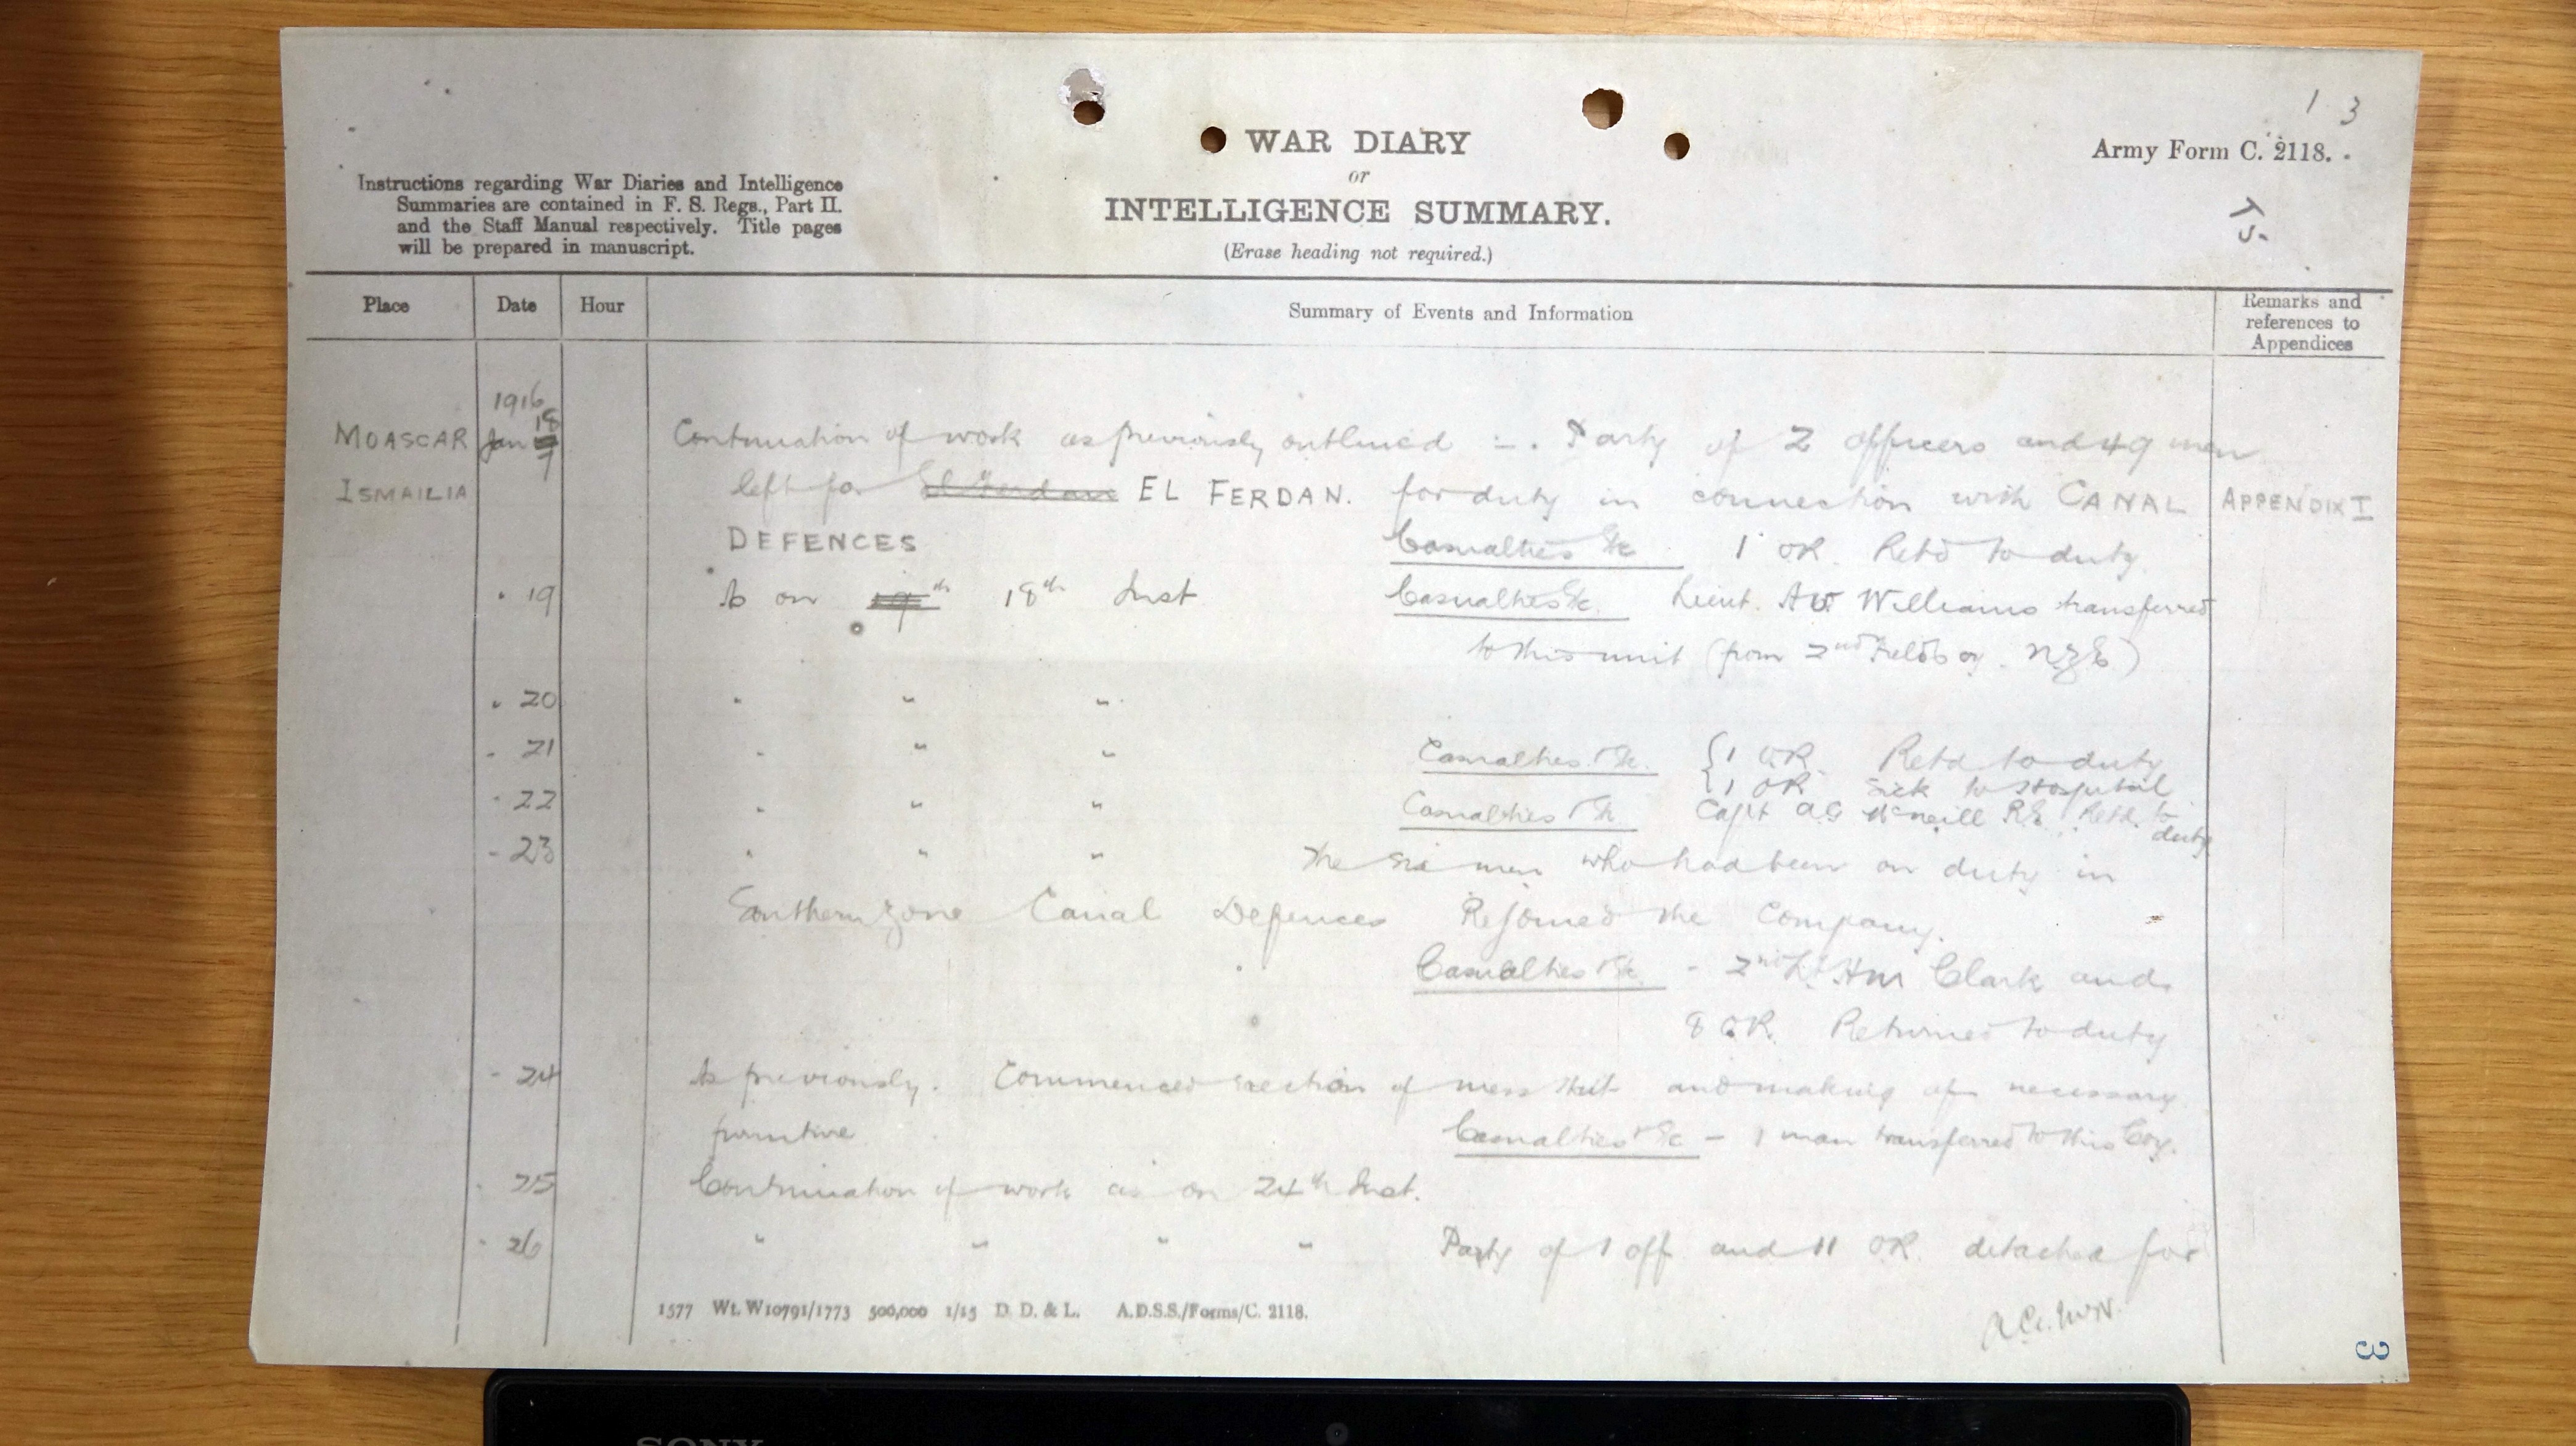 1 3
WAR DIARY
or
INTELLIGENCE SUMMARY.
(Erase heading not required.)
Army Form C. 2118.
Instructions regarding War Diaries and Intelligence
Summaries are contained in F. S. Regs., Part II.
and the Staff Manual respectively. Title pages
will be prepared in manuscript.
Place Date Hour Summary of Events and Information Remarks and references to Appendices
1916
MOASCAR Jan 18 Continuation of work as previously outlined :- . Party of 2 officers and 49 men
ISMAILIA left for El Ferdan EL FERDAN. for duty in connection with CANAL APPENDIX I
DEFENCES Casualties &c 1 OR. Retd to duty
" 19 As on 19th 18th Inst Casualties &c. Lieut. Williams transferred
to this unit (from 2nd Field Coy. NZE)
" 20 " " "
" 21 " " " Casualties &c. {1 OR. Retd to duty
{1 OR Sick to Hospital
" 22 " " " Casualties &c Capt AG McNeill RE. Retd. to duty
" 23 " " " The six men who had been on duty in
Southern Zone Canal Defences Rejoined the Company.
Casualties &c - 2nd Lt HM Clark and
8 OR. Returned to duty
" 24 As previously. Commenced erection of mess Hut and making of necessary
furniture Casualties &c - 1 man transferred to this Coy.
" 25 Continuation of work as on 24th Inst.
" 26 " " " " Party of 1 off. and 11 OR. detached for
1577 Wt. W10791/1773 500,000 1/15 D. D. & L. A.D.S.S./Forms/C. 2118.
3
SONY